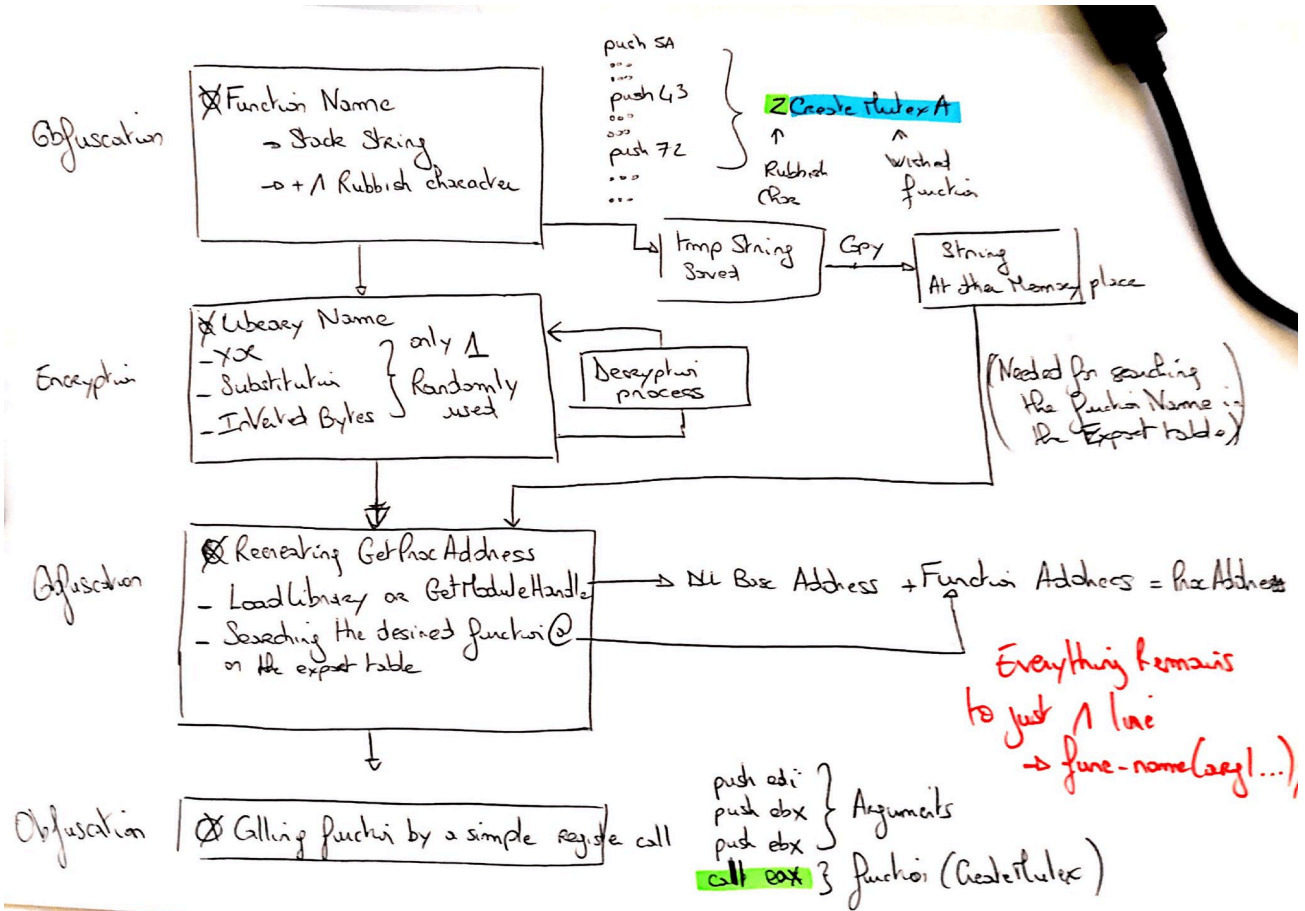 Obfuscation
Function Name
→ Stack String
→ + 1 Rubbish character
push 5A
...
...
push 43
...
...
push 72
...
...
ZCreateMutexA
Rubbish
Char
Wished
function
tmp String
Saved
Copy
String
At other Memory place
(Needed for searching
the function Name in
the Export table)
Encryption
Library Name
- XOR
- Substitution
- Inverted Bytes
only 1
Randomly
used
Decryption
process
Obfuscation
Recreating GetProcAddress
- LoadLibrary or GetModuleHandle
- Searching the desired function @
on the export table
→ Dll Base Address + Function Address = Proc Address
Everything Remains
to just 1 line
→ func-name(arg1...)
Obfuscation
Calling function by a simple register call
push edi
push ebx
push ebx
Arguments
call eax } function (CreateMutex)